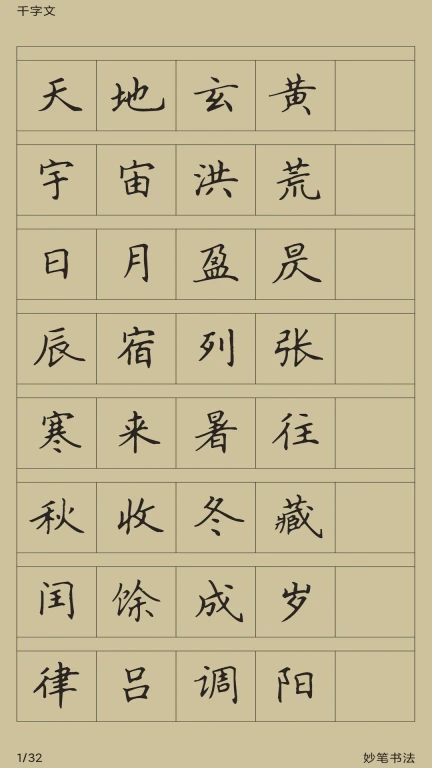 千字文
天地玄黄
宇宙洪荒
日月盈昃
辰宿列张
寒来暑往
秋收冬藏
闰馀成岁
律吕调阳
1/32
妙笔书法